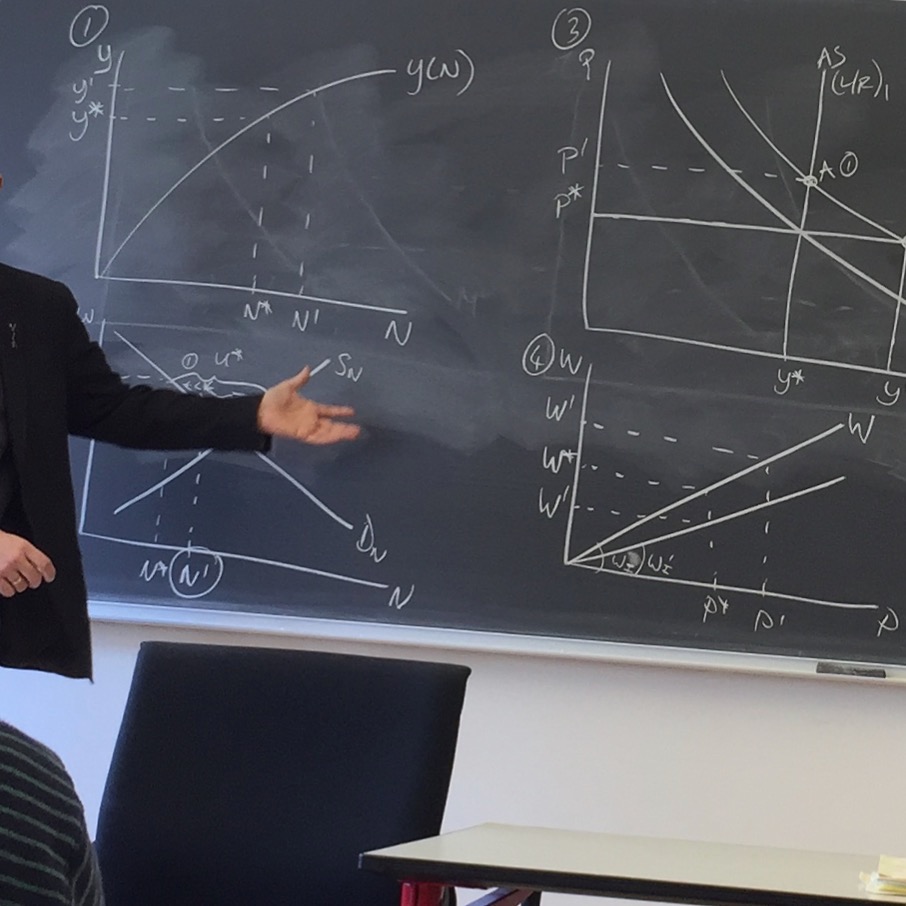 ①
y
y'
y*
y(N)
N* N' N
W
① u*
S_N
D_N
N* N' N
③
P
P'
P*
AS
(LR)₁
A ①
y* y
④ W
W'
W*
W'
W
P* P' P